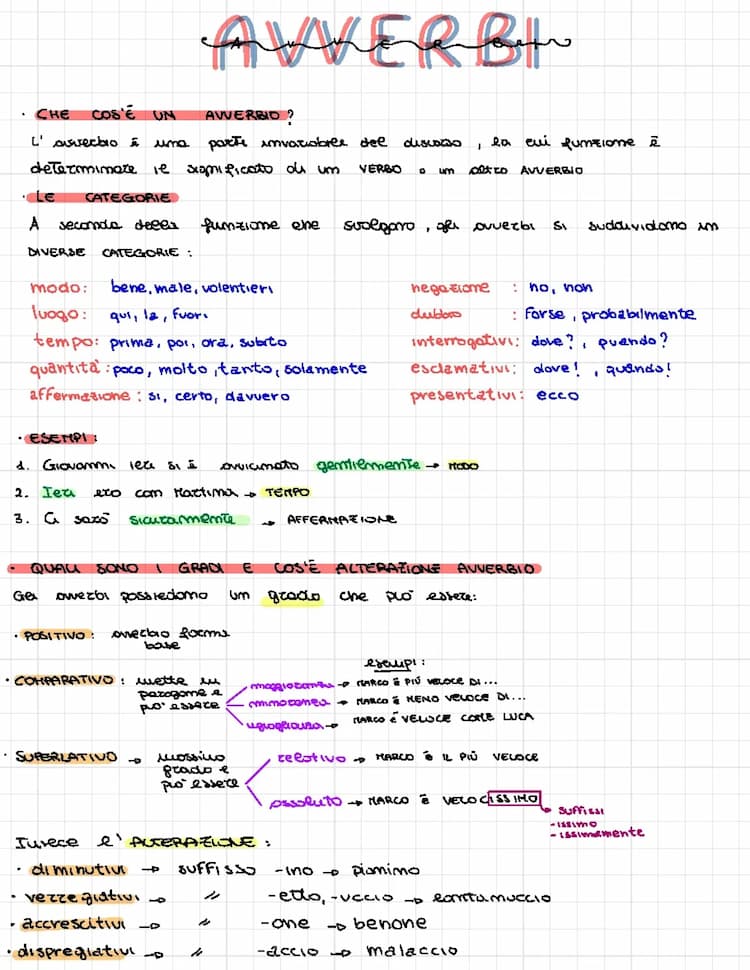 AVVERBI
AVVERBI
· CHE COS'È UN AVVERBIO?
L'avverbio è una parte invariabile del discorso, la cui funzione è
determinare il significato di un VERBO o un altro AVVERBIO
· LE CATEGORIE
A seconda della funzione che svolgono, gli avverbi si suddividono in
DIVERSE CATEGORIE:
modo: bene, male, volentieri
luogo: qui, la, fuori
tempo: prima, poi, ora, subito
quantità: poco, molto, tanto, solamente
affermazione: si, certo, davvero
negazione: no, non
dubbio: forse, probabilmente
interrogativi: dove?, quando?
esclamativi: dove!, quando!
presentativi: ecco
· ESEMPI:
1. Giovanni ieri si è avvicinato gentilmente → MODO
2. Ieri ero con Martina → TEMPO
3. Ci sarò sicuramente → AFFERMAZIONE
· QUALI SONO I GRADI E COS'È ALTERAZIONE AVVERBIO
Gli avverbi possiedono un grado che può essere:
· POSITIVO: avverbio forma
base
esempi:
· COMPARATIVO: mette in
paragone e
può essere
maggioranza → MARCO È PIÙ VELOCE DI...
minoranza → MARCO È MENO VELOCE DI...
uguaglianza → MARCO È VELOCE COME LUCA
· SUPERLATIVO → massimo
grado e
può essere
relativo → MARCO È IL PIÙ VELOCE
assoluto → MARCO È VELOCISSIMO
suffissi
-issimo
-issimamente
Invece l'ALTERAZIONE:
· diminutivi → suffisso -ino → pianino
· vezzegiativi → " -etto, -uccio → lontanuccio
· accrescitivi → " -one → benone
· dispregiativi → " -accio → malaccio